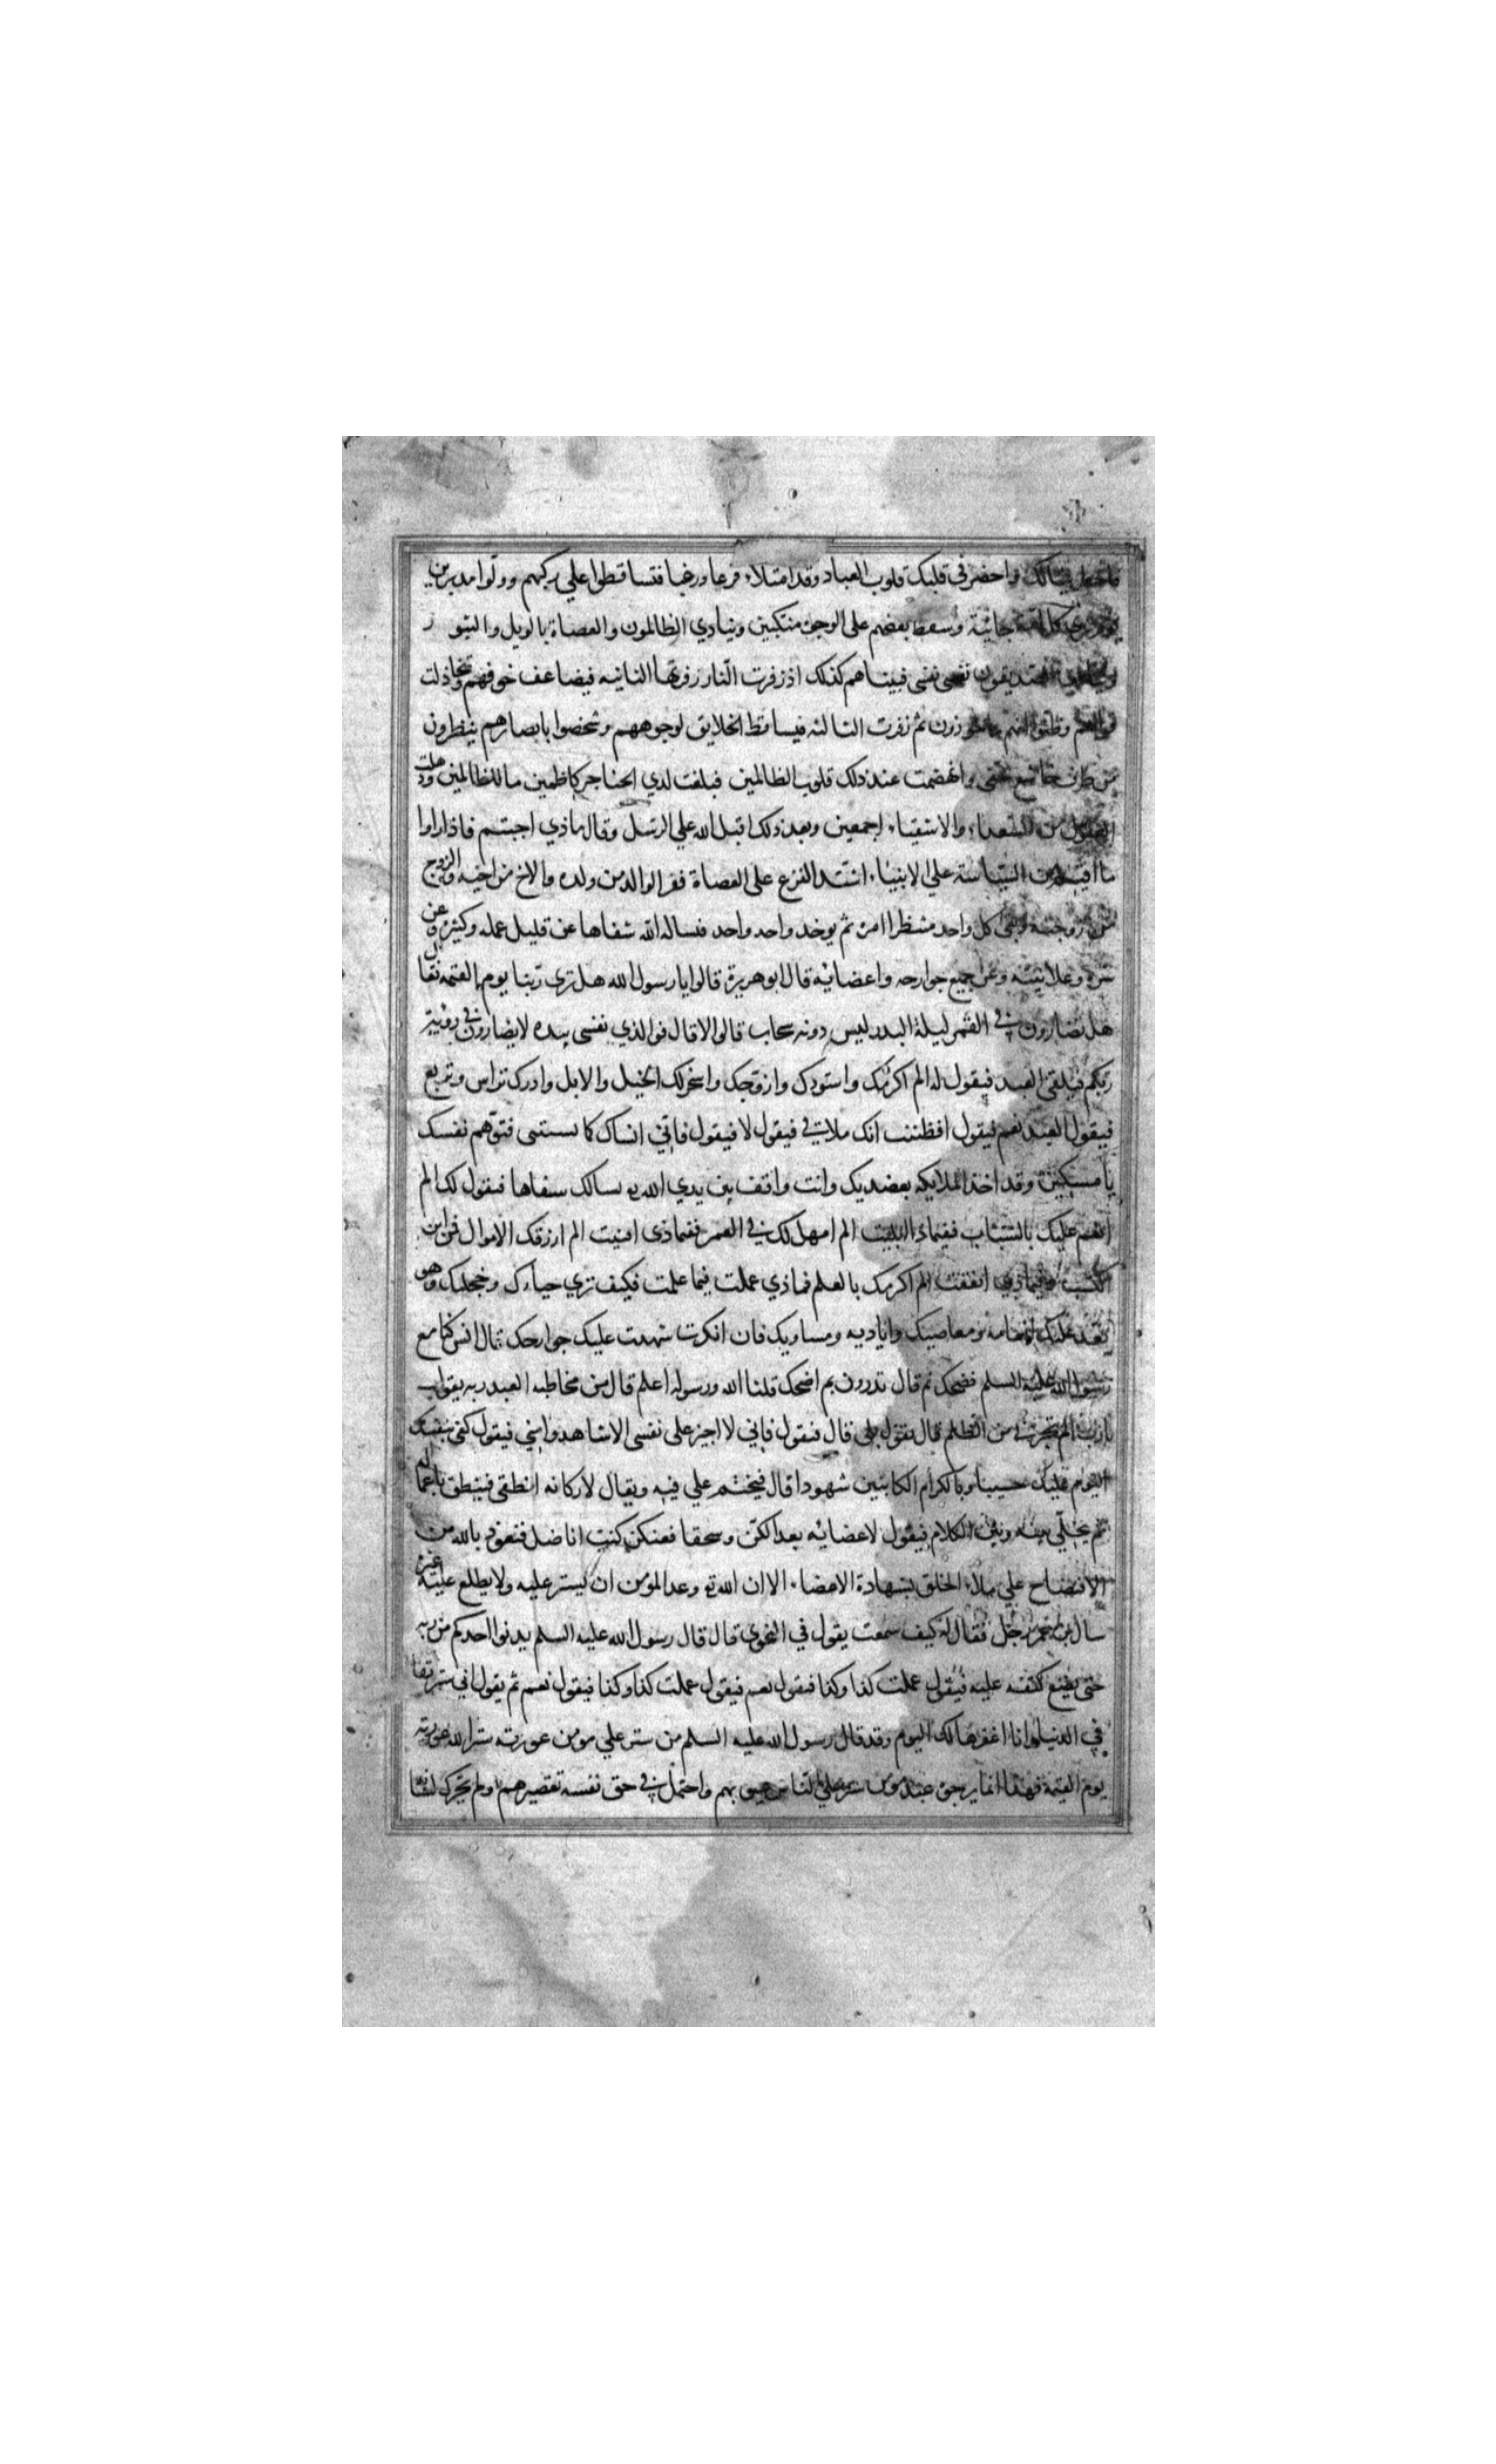 فاخطر ببالك واحضر في قلبك قلوب العباد وقد امتلاء فرعا ورغبا فتساقطوا علي ركبهم وولوا مدبرين
يوم تري كل امة جاثية وسقط بعضهم علي الوجوه منتكبين وينادي الظالمون والعصاة بالويل والثبور
وينادي الصديقون نفسي نفسي فبيناهم كذلك اذ زفرت النار زفرتها الثانيه فيضاعف خوفهم وتخاذلت
قواهم وظنوا انهم ماخوذون ثم زفرت الثالثه فيساقط الخلايق لوجوههم وشخصوا بابصارهم ينظرون
من طرف خاشع خفي وانهضمت عند ذلك قلوب الظالمين فبلغت لدي الحناجر كاظمين ما للظالمين وذهلت
العقول من السعداء والاشقياء اجمعين وبعد ذلك اقبل الله علي الرسل وقال ماذي اجبتم فاذا راوا
ما اقيم من السياسة علي الانبياء اشتد الفزع علي العصاة ففر الوالد من ولده والاخ من اخيه والزوج
من زوجته وبقي كل واحد منتظرا امره ثم يوخد واحد واحد فساله الله شفاها عن قليل عمله وكثيره وعن
سره وعلانيته وعن جميع جوارحه واعضائه قال ابو هريرة قالوا يا رسول الله هل نري ربنا يوم القيمه فقال
هل تضارون في القمر ليلة البدر ليس دونه سحاب قالوا لا قال فوالذي نفسي بيده لا يضارون في روية
ربكم فيلقي العبد فيقول له الم اكرمك واسودك وازوجك واسخر لك الخيل والابل وادرك تراس وتربع
فيقول العبد نعم فيقول افظننت انك ملاقي فيقول لا فيقول فاني انساك كما نسيتني فتوهم نفسك
يا مسكين وقد اخذ الملايكه بعضديك وانت واقف بين يدي الله تع يسالك شفاها فيقول لك الم
انعم عليك بالشباب ففيماذا ابليت الم امهل لك في العمر ففيماذي افنيت الم ارزقك الاموال فمن اين
اكتسبت وفيماذي انفقت الم اكرمك بالعلم فماذي عملت فيما علمت فكيف تري حياءك وخجلك وهو
يعد عليك انعامه ومعاصيك واياديه ومساويك فان انكرت شهدت عليك جوارحك قال انس كنا مع
رسول الله عليه السلم فضحك ثم قال تدرون بم اضحك قلنا الله ورسوله اعلم قال من مخاطبه العبد ربه يقول
يا رب الم تجرني من الظلم قال يقول بلي قال فيقول فاني لا اجيز علي نفسي الا شاهدا مني فيقول كفي بنفسك
اليوم عليك حسيبا وبالكرام الكاتبين شهودا قال فيختم علي فيه ويقال لاركانه انطقي فينطق باعماله
ثم يخلي بينه وبين الكلام فيقول لاعضائه بعدا لكن وسحقا فعنكن كنت اناضل فنعوذ بالله من
الافتضاح علي ملاء الخلق بشهادة الاعضاء الا ان الله تع وعد المؤمن ان يستر عليه ولا يطلع عليه غيره
سال ابن عمر رجل فقال له كيف سمعت يقول في النجوي قال قال رسول الله عليه السلم يدنوا احدكم من ربه
حتي يضع كتفه عليه فيقول عملت كذا وكذا فيقول نعم فيقول عملت كذا وكذا فيقول نعم ثم يقول اني سترتها
في الدنيا وانا اغفرها لك اليوم وقد قال رسول الله عليه السلم من ستر علي مومن عورته ستر الله عورته
يوم القيمة فهذا انما يرجي عبد مؤمن ستر علي الناس عيوبهم واحتمل في حق نفسه تقصيرهم ولم يحرك لسانه